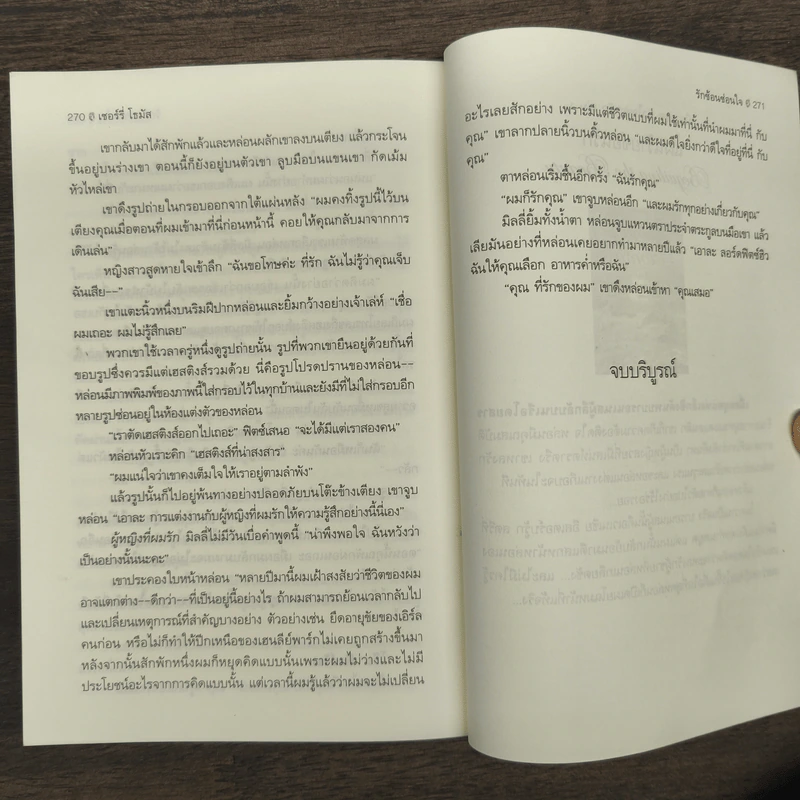 270 เชอร์รี่ โธมัส
เขากลับมาได้สักพักแล้วและหล่อนผลักเขาลงบนเตียง แล้วกระโจน
ขึ้นอยู่บนร่างเขา ตอนนี้ก็ยังอยู่บนตัวเขา ลูบมือบนแขนเขา กัดเม้ม
หัวไหล่เขา
เขาดึงรูปถ่ายในกรอบออกจากใต้แผ่นหลัง "ผมคงทิ้งรูปนี้ไว้บน
เตียงคุณเมื่อตอนที่ผมเข้ามาที่นี่ก่อนหน้านี้ คอยให้คุณกลับมาจากการ
เดินเล่น"
หญิงสาวสูดหายใจเข้าลึก "ฉันขอโทษค่ะ ที่รัก ฉันไม่รู้ว่าคุณเจ็บ
ฉันเสีย--"
เขาแตะนิ้วหนึ่งบนริมฝีปากหล่อนและยิ้มกว้างอย่างเจ้าเล่ห์ "เชื่อ
ผมเถอะ ผมไม่รู้สึกเลย"
พวกเขาใช้เวลาครู่หนึ่งดูรูปถ่ายนั้น รูปที่พวกเขายืนอยู่ด้วยกันที่
ขอบรูปซึ่งควรมีแต่เฮสติงส์รวมด้วย นี่คือรูปโปรดปรานของหล่อน--
หล่อนมีภาพพิมพ์ของภาพนี้ใส่กรอบไว้ในทุกบ้านและยังมีที่ไม่ใส่กรอบอีก
หลายรูปซ่อนอยู่ในห้องแต่งตัวของหล่อน
"เราตัดเฮสติงส์ออกไปเถอะ" ฟิตซ์เสนอ "จะได้มีแต่เราสองคน"
หล่อนหัวเราะคิก "เฮสติงส์ที่น่าสงสาร"
"ผมแน่ใจว่าเขาคงเต็มใจให้เราอยู่ตามลำพัง"
แล้วรูปนั้นก็ไปอยู่พ้นทางอย่างปลอดภัยบนโต๊ะข้างเตียง เขาจูบ
หล่อน "เอาละ การแต่งงานกับผู้หญิงที่ผมรักให้ความรู้สึกอย่างนี้นี่เอง"
ผู้หญิงที่ผมรัก มิลลี่ไม่มีวันเบื่อคำพูดนี้ "น่าพึงพอใจ ฉันหวังว่า
เป็นอย่างนั้นนะคะ"
เขาประคองใบหน้าหล่อน "หลายปีมานี้ผมเฝ้าสงสัยว่าชีวิตของผม
อาจแตกต่าง--ดีกว่า--ที่เป็นอยู่นี้อย่างไร ถ้าผมสามารถย้อนเวลากลับไป
และเปลี่ยนเหตุการณ์ที่สำคัญบางอย่าง ตัวอย่างเช่น ยืดอายุขัยของเอิร์ล
คนก่อน หรือไม่ก็ทำให้ปีกเหนือของเฮนลีย์พาร์กไม่เคยถูกสร้างขึ้นมา
หลังจากนั้นสักพักหนึ่งผมก็หยุดคิดแบบนั้นเพราะผมไม่ว่างและไม่มี
ประโยชน์อะไรจากการคิดแบบนั้น แต่เวลานี้ผมรู้แล้วว่าผมจะไม่เปลี่ยน
รักซ้อนซ่อนใจ 271
อะไรเลยสักอย่าง เพราะมีแต่ชีวิตแบบที่ผมใช้เท่านั้นที่นำผมมาที่นี่ กับ
คุณ" เขาลากปลายนิ้วบนคิ้วหล่อน "และผมดีใจยิ่งกว่าดีใจที่อยู่ที่นี่ กับ
คุณ"
ตาหล่อนเริ่มชื้นอีกครั้ง "ฉันรักคุณ"
"ผมก็รักคุณ" เขาจูบหล่อนอีก "และผมรักทุกอย่างเกี่ยวกับคุณ"
มิลลี่ยิ้มทั้งน้ำตา หล่อนจูบแหวนตราประจำตระกูลบนมือเขา แล้ว
เลียมันอย่างที่หล่อนเคยอยากทำมาหลายปีแล้ว "เอาละ ลอร์ดฟิตซ์ฮิว
ฉันให้คุณเลือก อาหารค่ำหรือฉัน"
"คุณ ที่รักของผม" เขาดึงหล่อนเข้าหา "คุณเสมอ"
จบบริบูรณ์